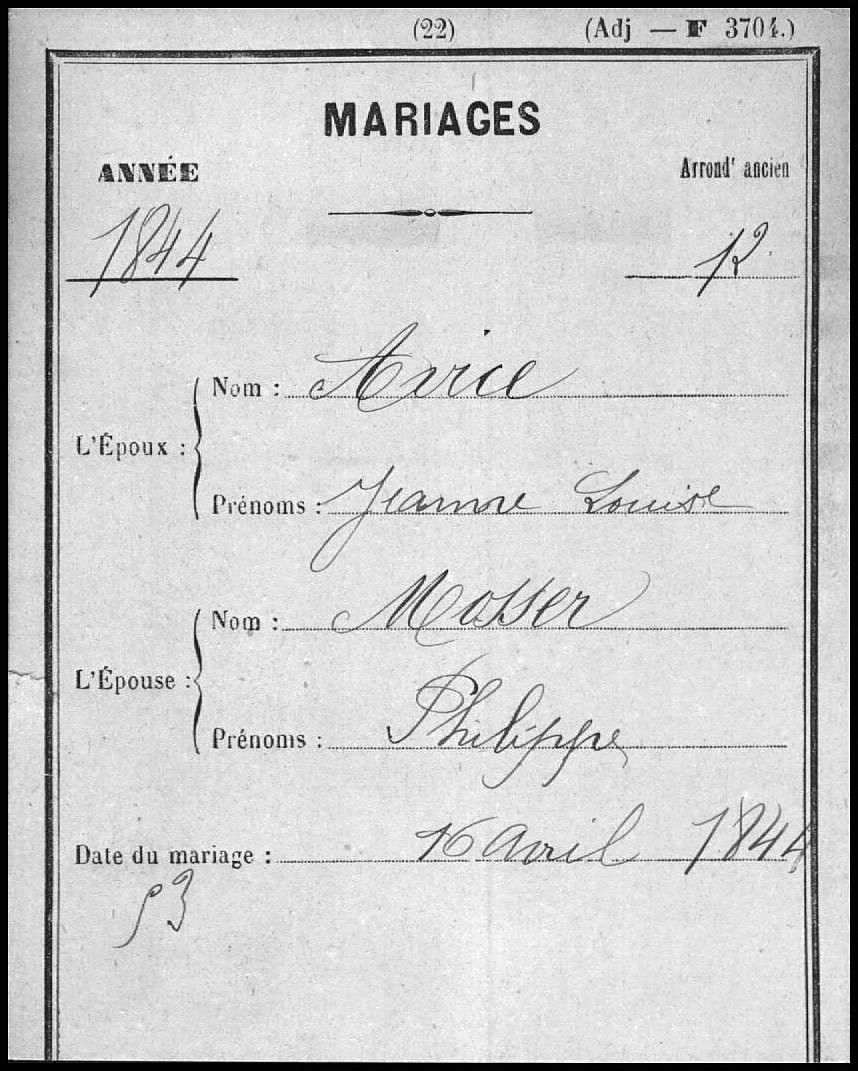 (22) (Adj — F 3704.)
MARIAGES
ANNÉE Arrondt ancien
1844 12
Nom : Avice
L'Époux :
Prénoms : Jeanne Louise
Nom : Mosser
L'Épouse :
Prénoms : Philippe
Date du mariage : 16 avril 1844
53